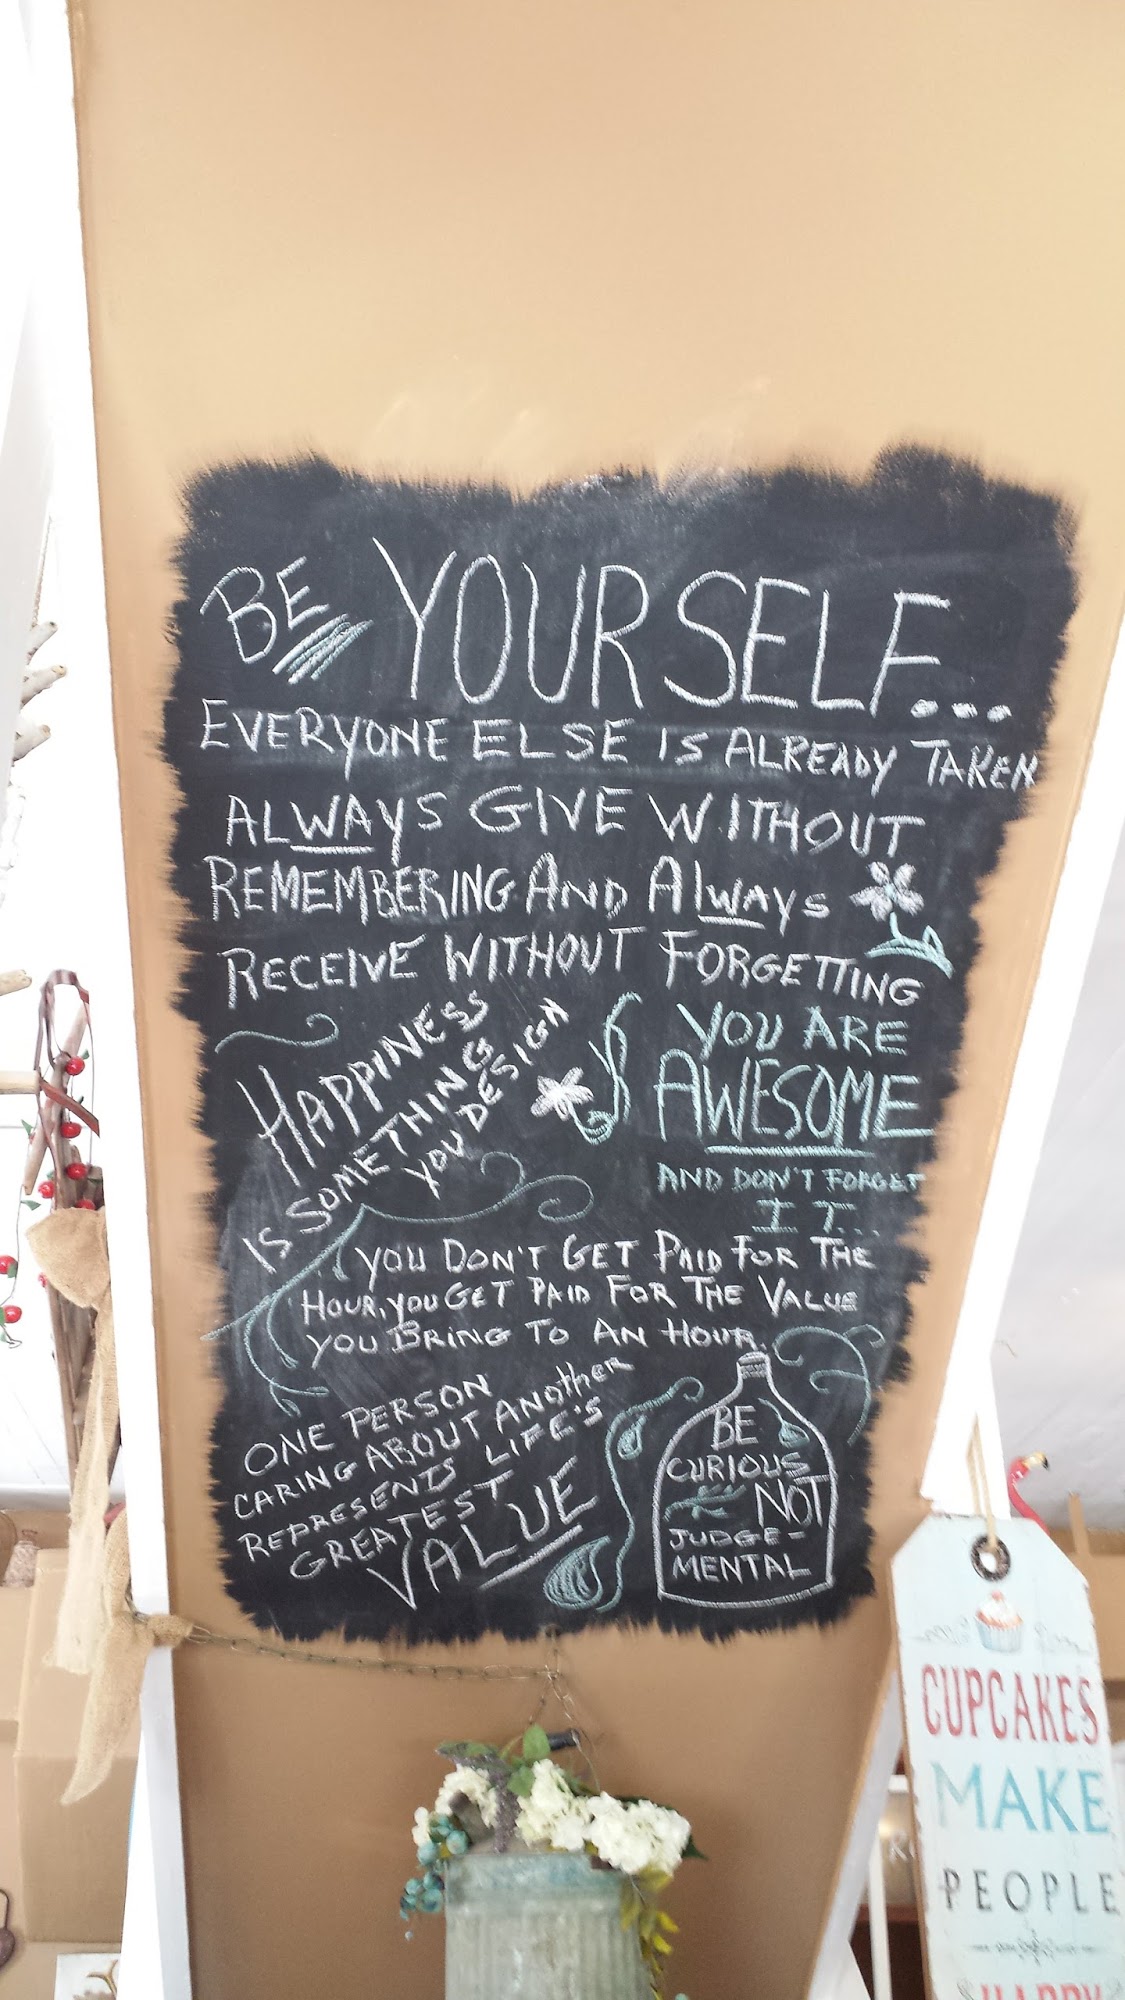 BE YOURSELF...
EVERYONE ELSE IS ALREADY TAKEN
ALWAYS GIVE WITHOUT
REMEMBERING AND ALWAYS
RECEIVE WITHOUT FORGETTING
HAPPINESS
IS SOMETHING
YOU DESIGN
YOU ARE
AWESOME
AND DON'T FORGET
IT..
YOU DON'T GET PAID FOR THE
HOUR, YOU GET PAID FOR THE VALUE
YOU BRING TO AN HOUR.
ONE PERSON
CARING ABOUT ANOTHER
REPRESENTS LIFE'S
GREATEST
VALUE
BE
CURIOUS
NOT
JUDGE-
MENTAL
CUPCAKES
MAKE
PEOPLE
HAPPY